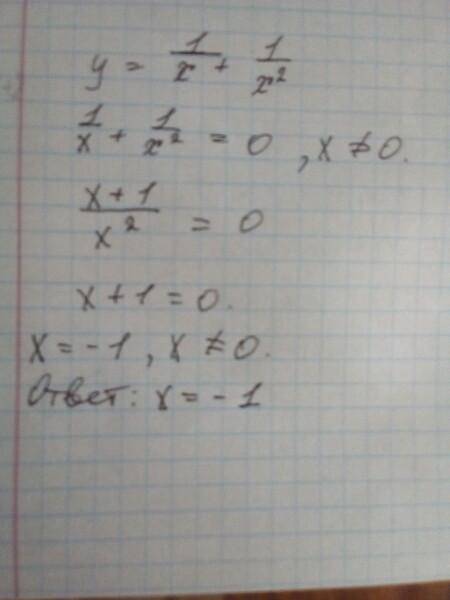 y = 1/x + 1/x²
1/x + 1/x² = 0 , x ≠ 0.
(x + 1)/x² = 0
x + 1 = 0.
x = -1 , x ≠ 0.
Ответ: x = -1